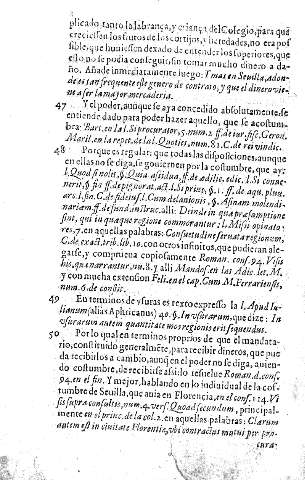 plicado tanto la labrança, y criança del Colegio, para que
creciessen los frutos de los cortijos, y heredades, no era pos
sible, que huuiessen dexado de entender los superiores, que
esto no se podia conseguir, sin tomar mucho dinero a da-
ño. Añade inmediatamente luego: Y mas en Seuilla, adon-
de es tan frequente este genero de contrato, y que el dinero vie-
ne a ser la mejor mercaderia.
47 Y el poder, aunque se aya concedido absolutamente, se
entiende dado para poder hazer aquello, que se acostum-
bra: Bart. in la l. Si procurator, 5. num. 2. ff. de iur. fisc. Geron.
Maril. en la repet. de la l. Quoties, num. 81. C. de rei vindic.
48 Porque es regular: que todas las disposiciones, aunque
en ellas no se diga, se gouiernen por la costumbre, que ay:
l. Quod si nolit, §. Quia assidua, ff. de aedilic. edic. l. Si conue-
nerit, § fin. ff. de pignorat. act. l. Si prius, §. 1. ff. de aqua pluu.
arc. l. fin. C. de fideiuss. l. Cum de lanionis, §. Asinam molendi-
nariam, ff. de fund. instruc. alli: Deinde in qua praesumptione
sint, qui in quaque regione commorantur: l. Missi opinato-
res, 7. en aquellas palabras: Consuetudine seruata regionum,
C. de exact. trib. lib. 10. con otros infinitos, que podrian ale-
garse, y comprueua copiosamente Roman. conf. 94. Visis
his, quae narrantur, nu. 8. y alli Mandos. en las Adic. let. M.
y con mucha extension Felin. en el cap. Cum M. Ferrariensis,
num. 6. de constit.
49 En terminos de vsuras es texto expresso la l. Apud Iu-
lianum (alias Aphricanus) 40. §. In vsurarum, que dize: In
vsurarum autem quantitate mos regionis erit sequendus.
50 Por lo qual en terminos propios de que el mandata-
rio, constituido generalmēte, para recibir dineros, que pue-
da recibirlos a cambio, aunq̄ en el poder no se diga, auien-
do costumbre, de recibirse assi, lo resuelue Roman. d. cons.
94. en el fin. Y mejor, hablando en lo indiuidual de la cos-
tumbre de Seuilla, que auia en Florencia, en el cons. 124. Vi-
sis supra consultis, num. 4. vers. Quoad secundum, principal-
mente en el princ. de la col. 2. en aquellas palabras: Clarum
autem est in ciuitate Florentiae, vbi contractus mutui per pro-
cura-